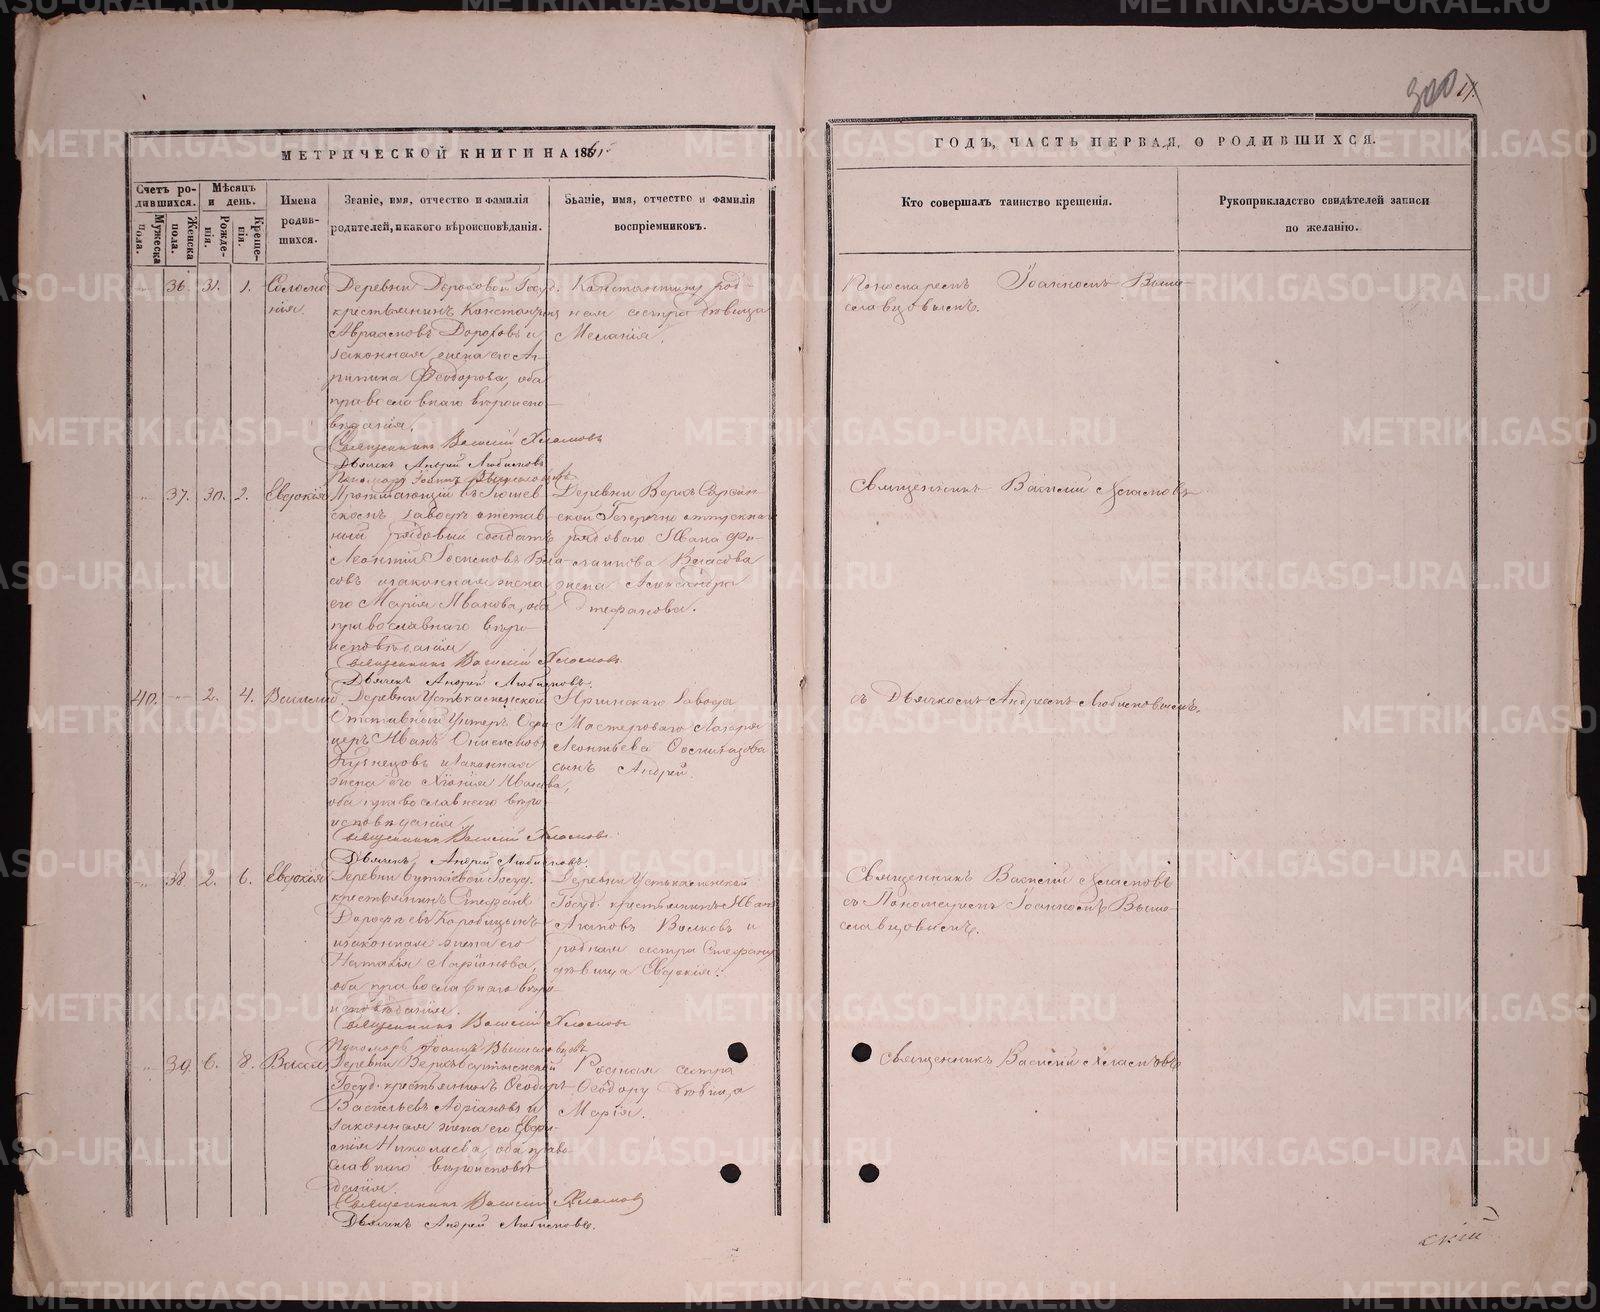 300 17.
МЕТРИЧЕСКОЙ КНИГИ НА 1861
ГОДЪ, ЧАСТЬ ПЕРВАЯ, О РОДИВШИХСЯ.
Счетъ родившихся.
Мужеска пола.
Женска пола.
Мѣсяцъ и день.
Рожденія.
Крещенія.
Имена родившихся.
Званіе, имя, отчество и фамилія
родителей, и какого вѣроисповѣданія.
Званіе, имя, отчество и фамилія
воспріемниковъ.
Кто совершалъ таинство крещенія.
Рукоприкладство свидѣтелей записи
по желанію.
36. 31. 1. Соломонія.
Деревни Дороховой Госуд.
крестьянинъ Константинъ
Авраамовъ Дороховъ и
законная жена его Агрипина
Феодорова, оба
православнаго вѣроисповѣданія.
Священникъ Василій Хламовъ
Дьячекъ Андрей Любимовъ
Пономарь Іоаннъ Вышеславцовъ
Константину родная
сестра дѣвица
Меланія.
Пономаремъ Іоанномъ Вышеславцовымъ.
37. 30. 2. Евдокія
заводѣ отставный
рядовый солдатъ
Леонтій Власовъ
и законная жена
его Марія Иванова, оба
православнаго вѣроисповѣданія
Священникъ Василій Хламовъ
Дьячекъ Андрей Любимовъ.
Деревни
рядоваго Ивана
Власова
жена Александра
Стефанова.
Священникъ Василій Хламовъ
40. 2. 4. Василій.
Деревни Устьмасленской
Отставный Унтеръ Офицеръ
Иванъ
Кузнецовъ и законная
жена его Хіонія Иванова,
оба православнаго вѣроисповѣданія
Священникъ Василій Хламовъ
Дьячекъ Андрей Любимовъ.
завода
Мастероваго Лазаря
Леонтьева
сынъ Андрей.
съ Дьячкомъ Андреемъ Любимовымъ.
38. 2. 6. Евдокія
Деревни Госуд.
крестьянинъ Стефанъ
Дорофѣевъ Коробицынъ
и законная жена его
Наталія Ларіонова,
оба православнаго вѣроисповѣданія.
Священникъ Василій Хламовъ
Пономарь Іоаннъ Вышеславцовъ
Деревни Устьмасленской
Госуд. крестьянинъ Иванъ
Агаповъ Волковъ и
родная сестра Стефану
дѣвица Евдокія.
Священникъ Василій Хламовъ
съ Пономаремъ Іоанномъ Вышеславцовымъ.
39. 6. 8. Васса
Деревни
Госуд. крестьянинъ Феодоръ
Васильевъ Адріановъ и
законная жена его
Николаева, оба православнаго
вѣроисповѣданія
Священникъ Василій Хламовъ
Дьячекъ Андрей Любимовъ.
Родная сестра
Феодору дѣвица
Марія.
Священникъ Василій Хламовъ
скій
METRIKI.GASO-URAL.RU